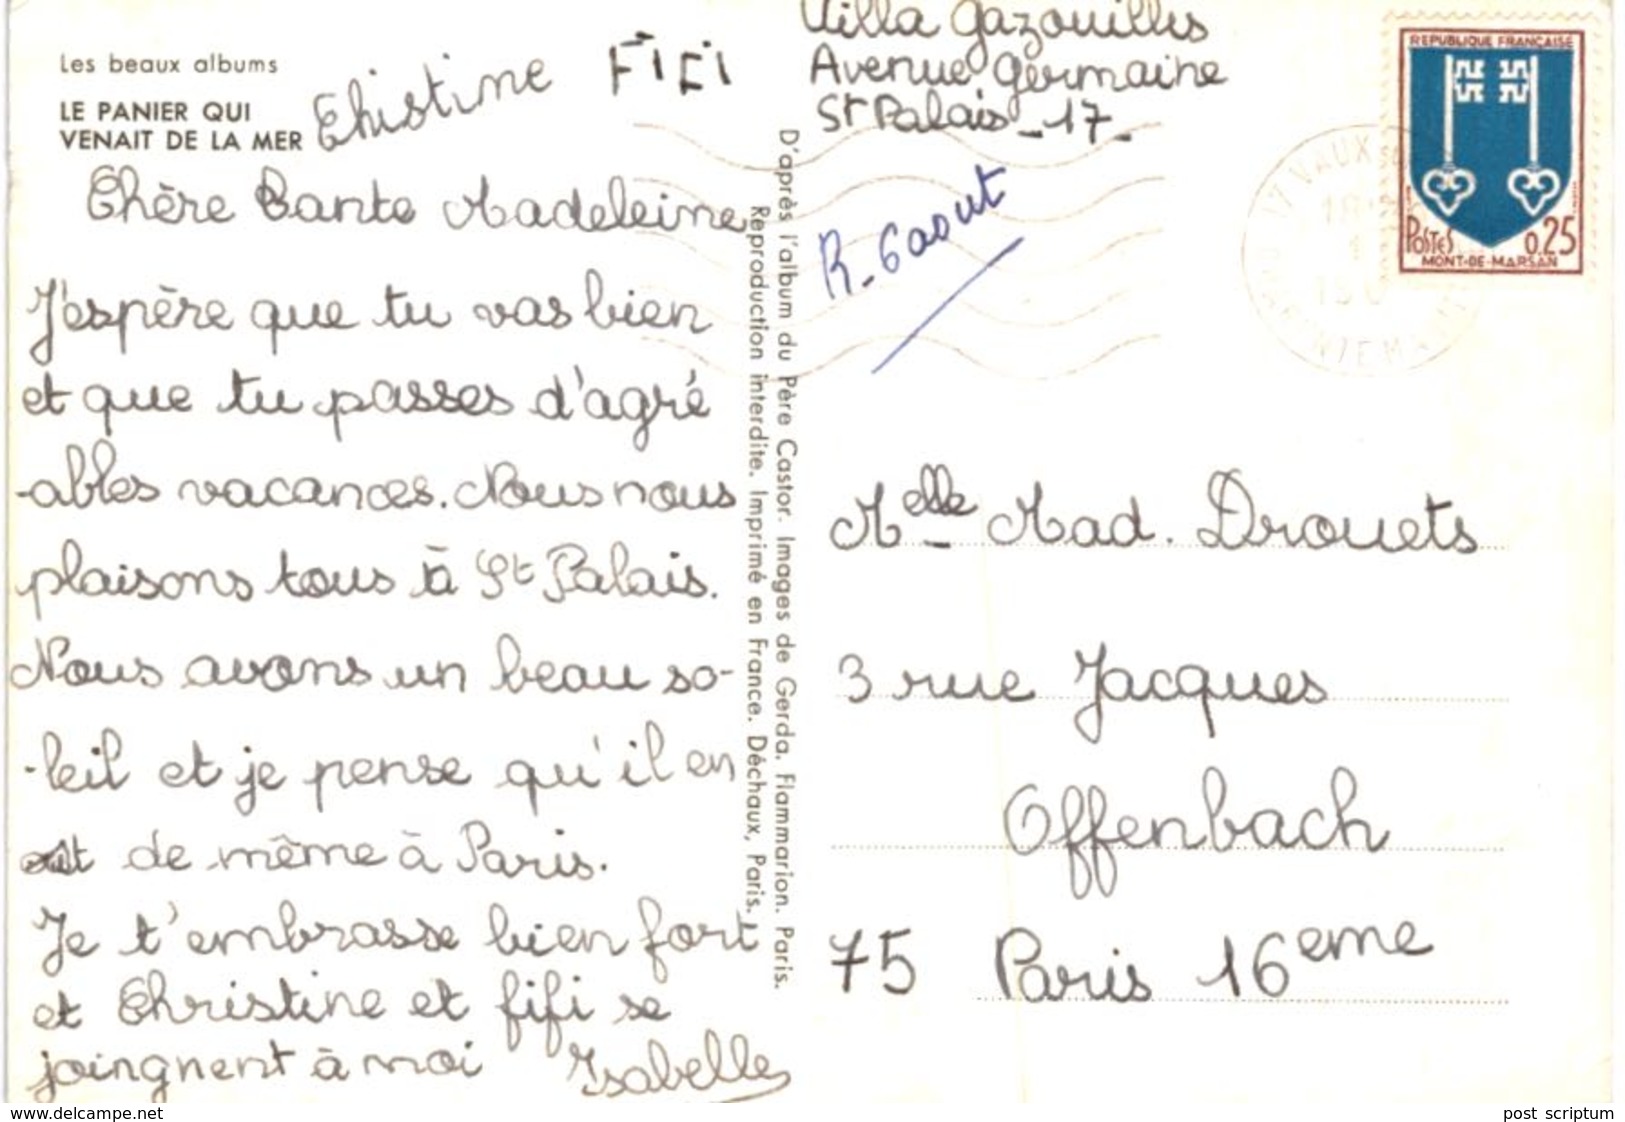 Les beaux albums
LE PANIER QUI
VENAIT DE LA MER
Chistine FIFI
Chère Tante Madeleine
J'espère que tu vas bien
et que tu passes d'agré
-ables vacances. Nous nous
plaisons tous à St Palais.
Nous avons un beau so-
-leil et je pense qu'il en
est de même à Paris.
Je t'embrasse bien fort
et Christine et fifi se
joingnent à moi Isabelle
D'après l'album du Père Castor. Images de Gerda. Flammarion. Paris.
Reproduction interdite. Imprimé en France. Déchaux, Paris.
Villa Gazouillis
Avenue Germaine
St Palais - 17 -
R. 6 aout
REPUBLIQUE FRANÇAISE
POSTES 0,25
MONT-DE-MARSAN
17 VAUX
Melle Mad. Drouets
3 rue Jacques
Offenbach
75 Paris 16eme
www.delcampe.net
post scriptum